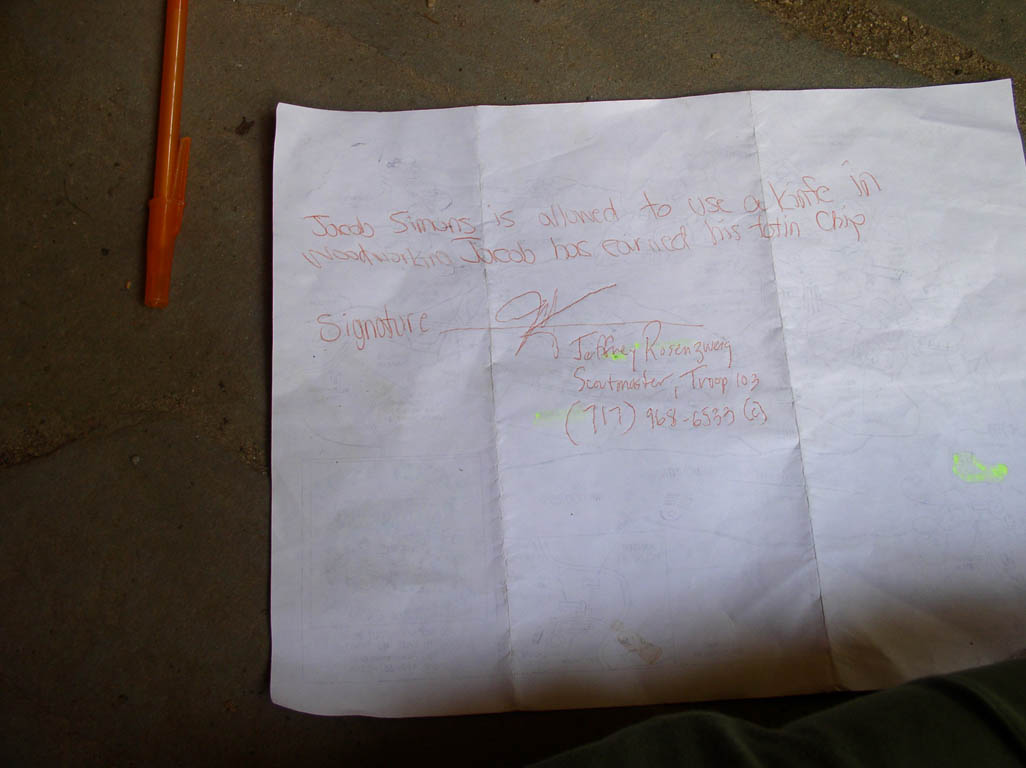 Jacob Simons is allowed to use a knife in
woodworking Jacob has earned his totin Chip
Signature
Jeffrey Rosenzweig
Scoutmaster, Troop 103
(717) 968-6533 (c)